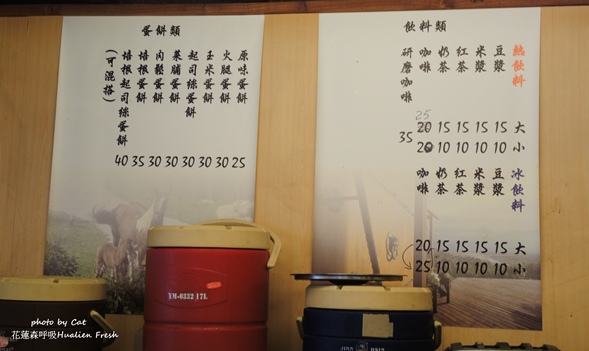 飲料類
熱飲料 大 小
豆漿 15 10
米漿 15 10
紅茶 15 10
奶茶 15 10
咖啡 25 20 20
研磨咖啡 35
冰飲料 大 小
豆漿 15 10
米漿 15 10
紅茶 15 10
奶茶 15 10
咖啡 20 25
蛋餅類
原味蛋餅 25
火腿蛋餅 30
玉米蛋餅 30
起司絲蛋餅 30
菜脯蛋餅 30
肉鬆蛋餅 30
培根蛋餅 35
培根起司絲蛋餅 40
(可混搭)
YM-0332 17L
photo by Cat
花蓮森呼吸Hualien Fresh